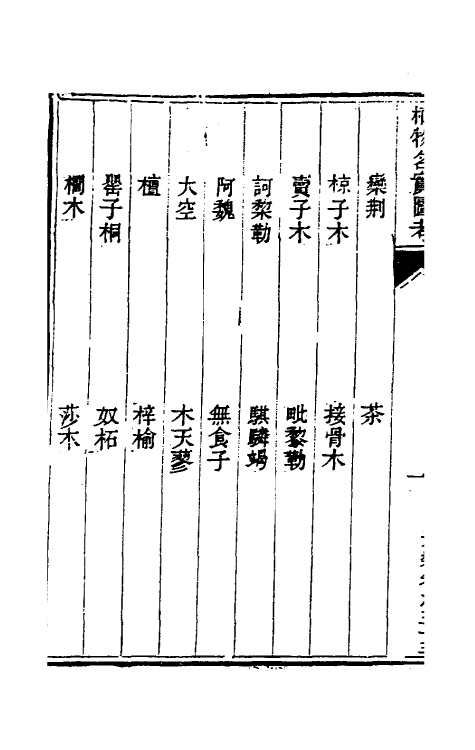 植物名實圖考
欒荆
茶
椋子木
接骨木
賣子木
毗黎勒
訶黎勒
騏驎竭
阿魏
無食子
大空
木天蓼
檀
梓榆
罌子桐
奴柘
櫚木
莎木